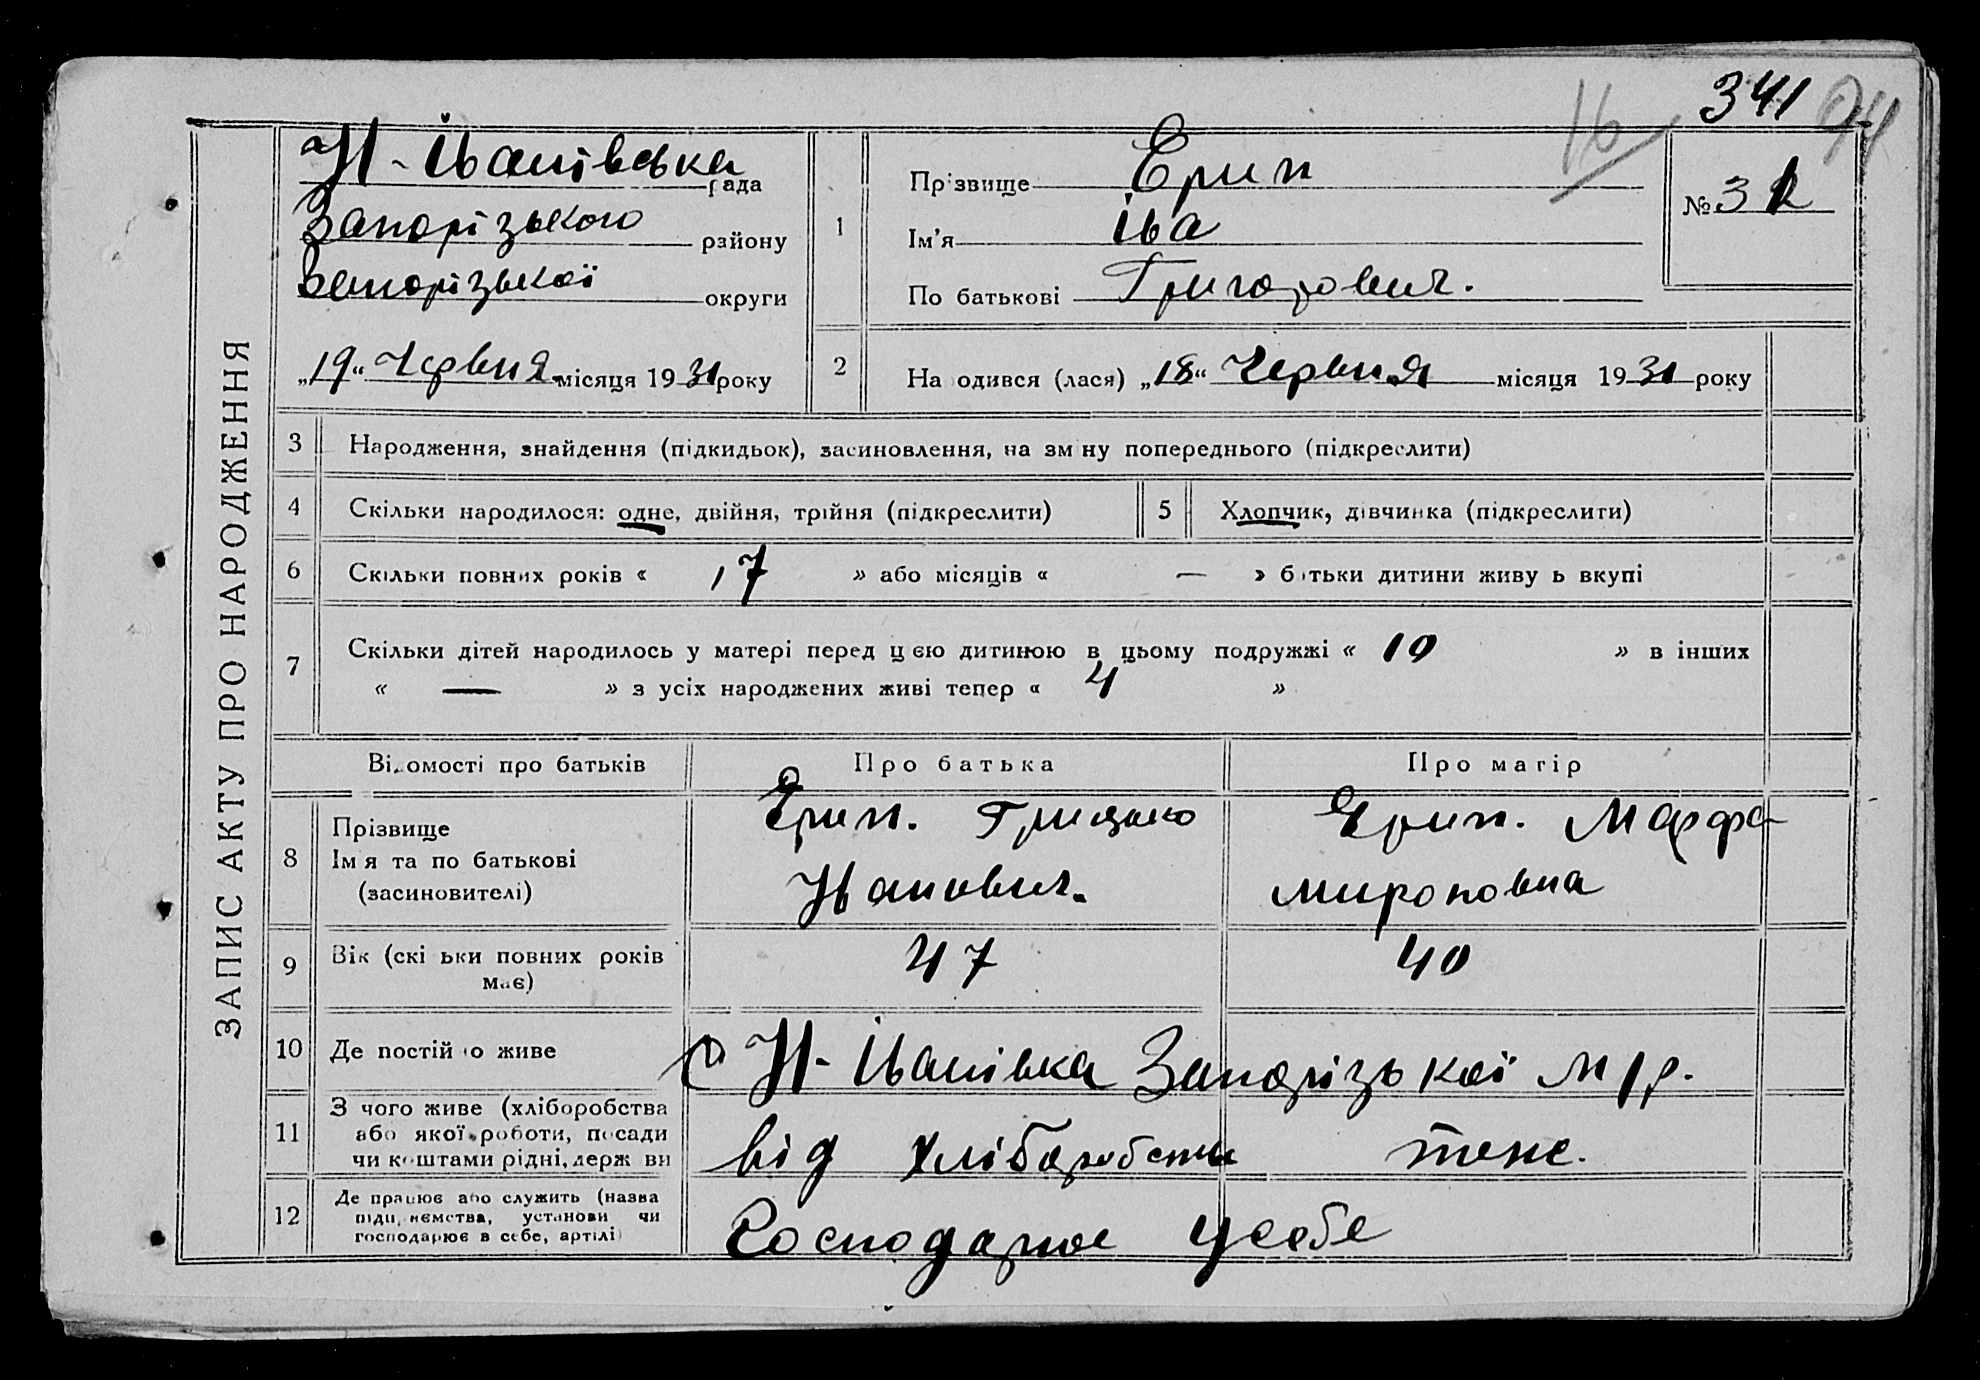 341
16
94
ЗАПИС АКТУ ПРО НАРОДЖЕННЯ
Н-Іванівська рада
Запорізького району
Запорізької округи
„19“ Червня місяця 1931 року
1
Прізвище Ерип
Ім’я Іва
По батькові Григорович.
№ 31
2
На одився (лася) „18“ Червня місяця 1931 року
3 Народження, знайдення (підкидьок), засиновлення, на зміну попереднього (підкреслити)
4 Скільки народилося: одне, двійня, трійня (підкреслити)
5 Хлопчик, дівчинка (підкреслити)
6 Скільки повних років « 17 » або місяців « — » батьки дитини живу ь вкупі
7 Скільки дітей народилось у матері перед цією дитиною в цьому подружжі « 10 » в інших
« — » з усіх народжених живі тепер « 4 »
Відомості про батьків
Про батька
Про матір
8 Прізвище
Ім я та по батькові
(засиновителі)
Ерип. Грицько
Иванович.
Ерип. Марфа
Мироновна
9 Вік (скі ьки повних років
має)
47
40
10 Де постійно живе
с Н-Іванівка Запорізької м/р.
11 З чого живе (хліборобства
або якої роботи, посади
чи коштами рідні, держ ви
від хліборобства
теж.
12 Де працює або служить (назва
підприємства, установи чи
господарює в себе, артілі)
Господарює у себе